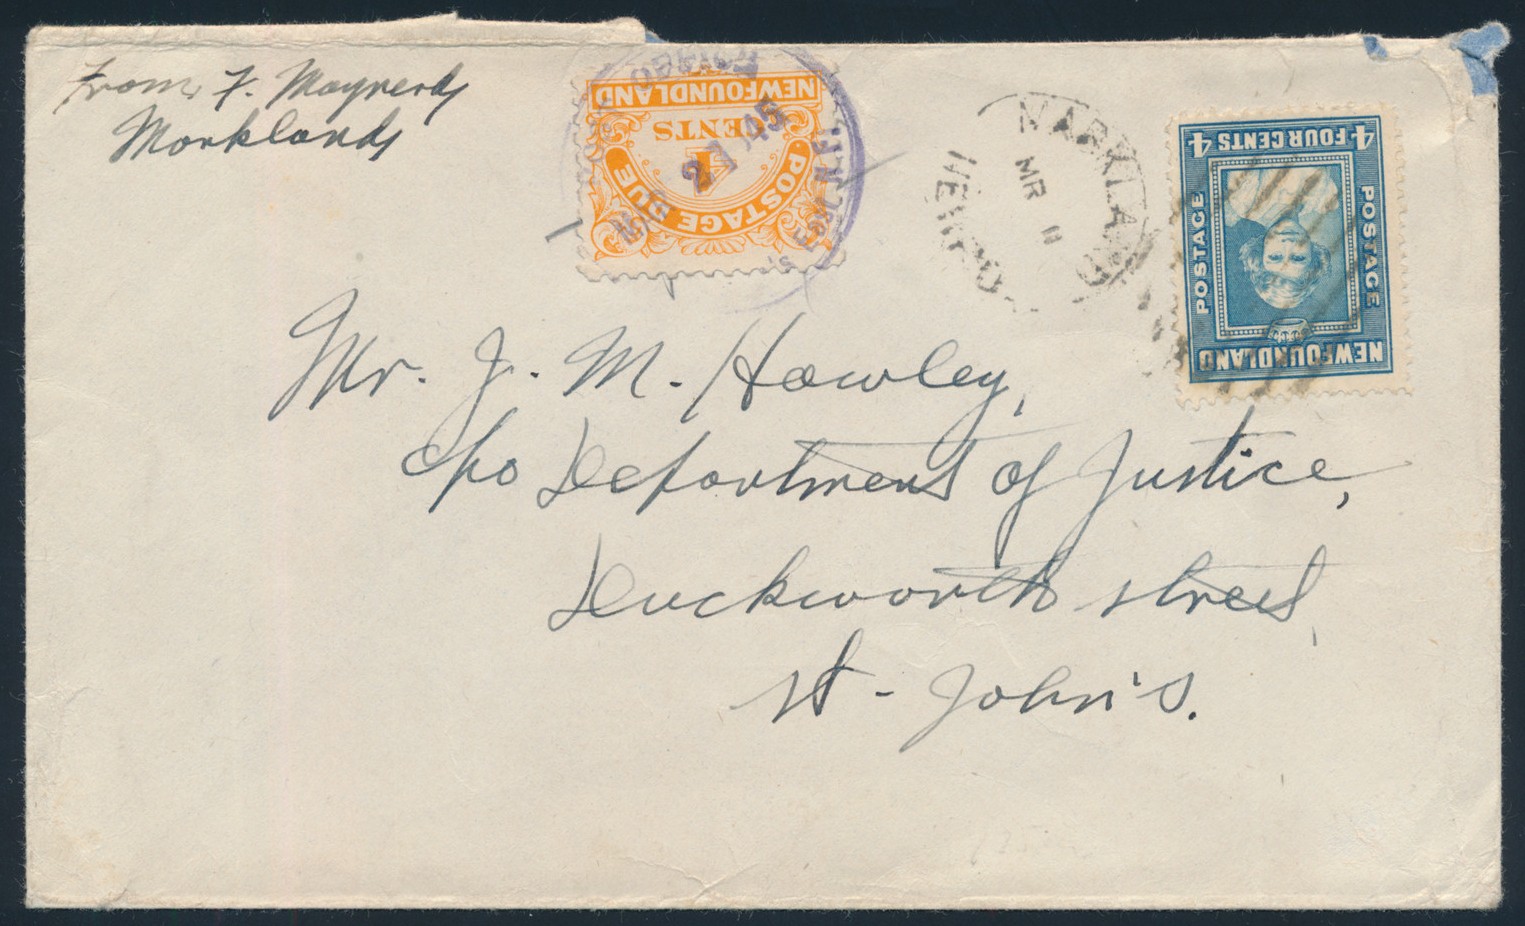 From F. Maynerd
Markland
NEWFOUNDLAND
CENTS
4
POSTAGE DUE
27 45
MARKLAND
MR 11
NEWFO
4 FOUR CENTS 4
POSTAGE
POSTAGE
NEWFOUNDLAND
Mr. J. M. Hawley,
c/o Department of Justice,
Duckworth street,
St - John's.